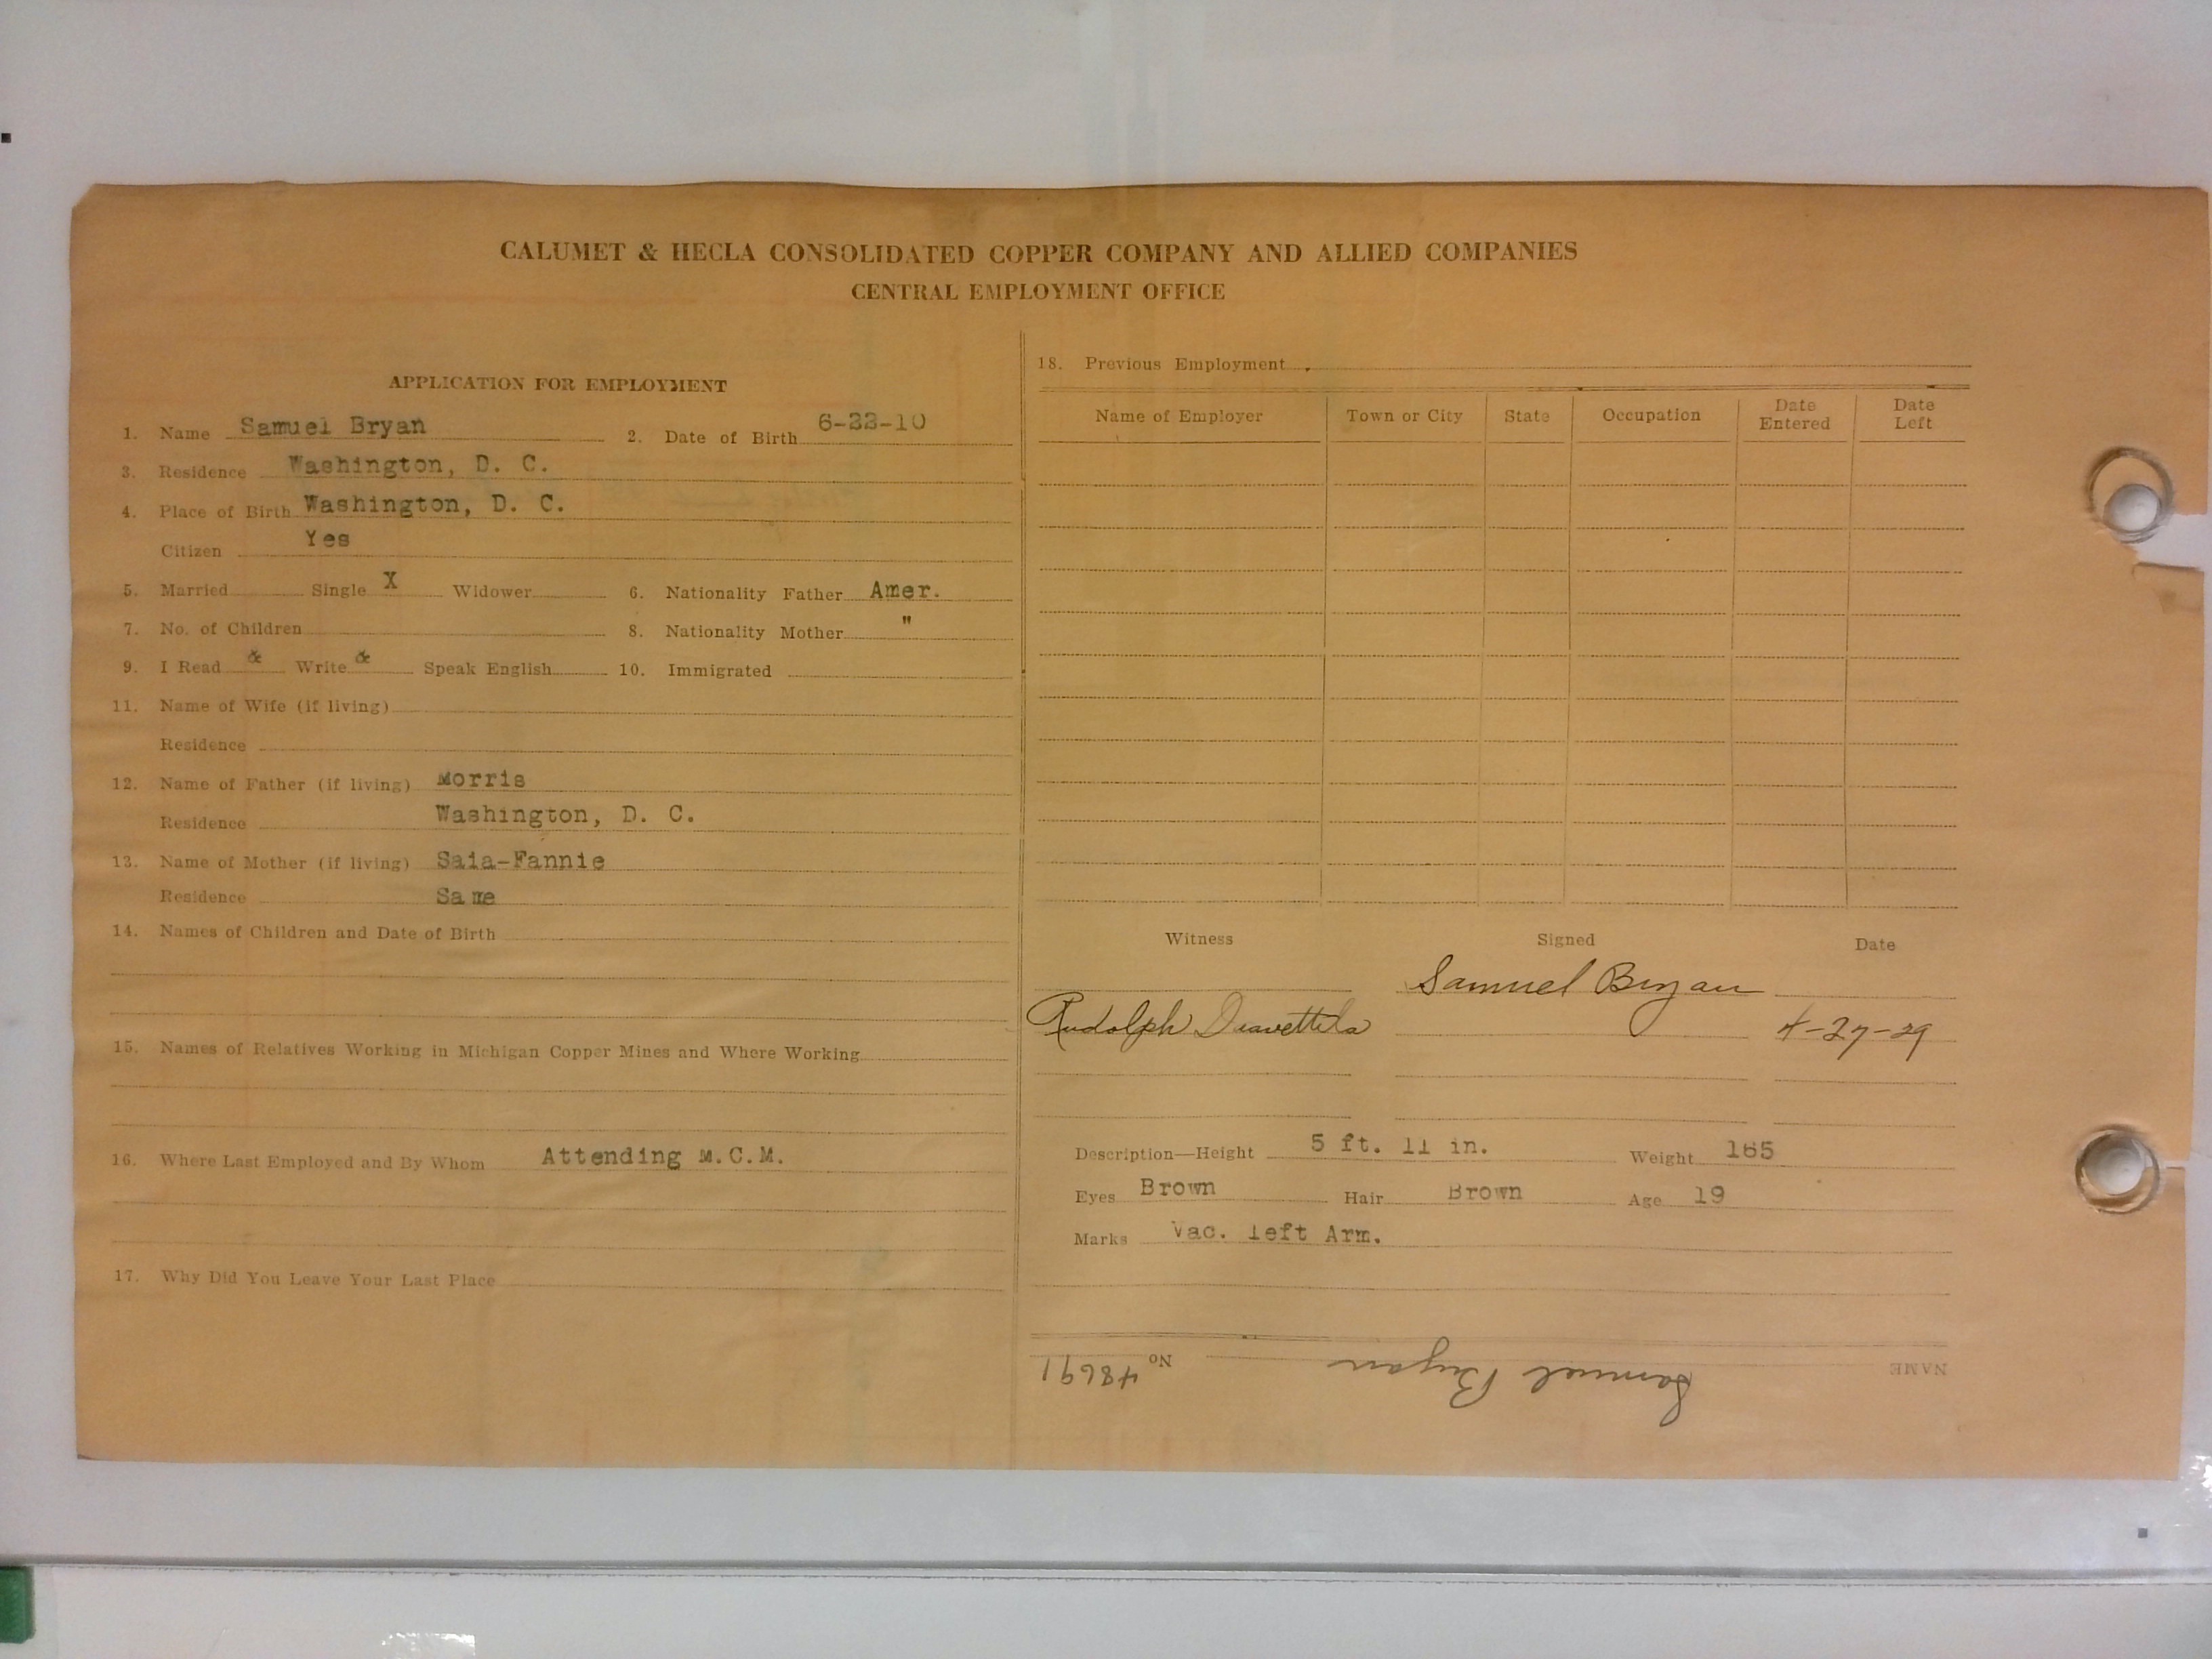 CALUMET & HECLA CONSOLIDATED COPPER COMPANY AND ALLIED COMPANIES
CENTRAL EMPLOYMENT OFFICE
APPLICATION FOR EMPLOYMENT
1. Name Samuel Bryan 2. Date of Birth 6-22-10
3. Residence Washington, D. C.
4. Place of Birth Washington, D. C.
Citizen Yes
5. Married Single X Widower 6. Nationality Father Amer.
7. No. of Children 8. Nationality Mother "
9. I Read & Write & Speak English 10. Immigrated
11. Name of Wife (if living)
Residence
12. Name of Father (if living) Morris
Residence Washington, D. C.
13. Name of Mother (if living) Saia-Fannie
Residence Same
14. Names of Children and Date of Birth
15. Names of Relatives Working in Michigan Copper Mines and Where Working
16. Where Last Employed and By Whom Attending M.C.M.
17. Why Did You Leave Your Last Place
18. Previous Employment
Name of Employer Town or City State Occupation Date Entered Date Left
Witness Signed Date
Samuel Bryan
Rudolph 4-27-29
Description—Height 5 ft. 11 in. Weight 165
Eyes Brown Hair Brown Age 19
Marks Vac. left Arm.
NAME Samuel Bryan No 48691